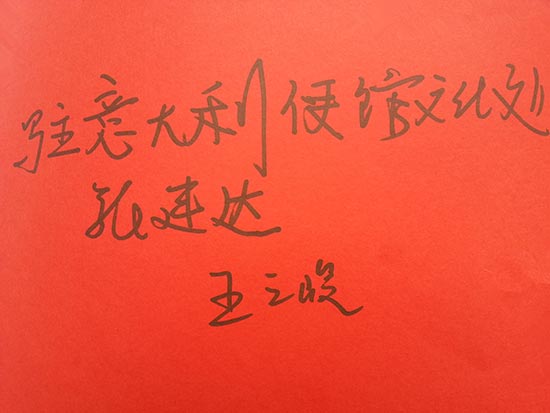 驻意大利使馆文化处
张建达
王之